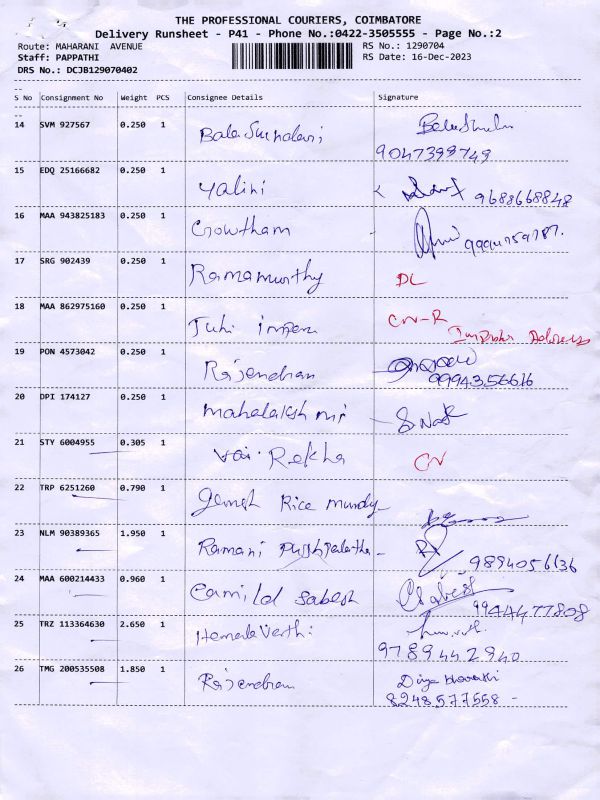 THE PROFESSIONAL COURIERS, COIMBATORE
Delivery Runsheet - P41 - Phone No.:0422-3505555 - Page No.:2
Route: MAHARANI AVENUE RS No.: 1290704
Staff: PAPPATHI RS Date: 16-Dec-2023
DRS No.: DCJB129070402
S No Consignment No Weight PCS Consignee Details Signature
14 SVM 927567 0.250 1 Bala
9047398749
15 EDQ 25166682 0.250 1 Yalini 9688668848
16 MAA 943825183 0.250 1 Gowtham
17 SRG 902439 0.250 1 Ramamurthy DL
18 MAA 862975160 0.250 1 CN-R
19 PON 4573042 0.250 1 Rajendran
9994356616
20 DPI 174127 0.250 1 mahalakshmi
21 STY 6004955 0.305 1 Rekha CN
22 TRP 6251260 0.790 1 Rice mundy
23 NLM 90389365 1.950 1 Ramani pushpalatha 9894056136
24 MAA 600214433 0.960 1 Sabesh
9944477808
25 TRZ 113364630 2.650 1
9789442940
26 TMG 200535508 1.850 1 Rajendran Divya bharathi
8248577558 -